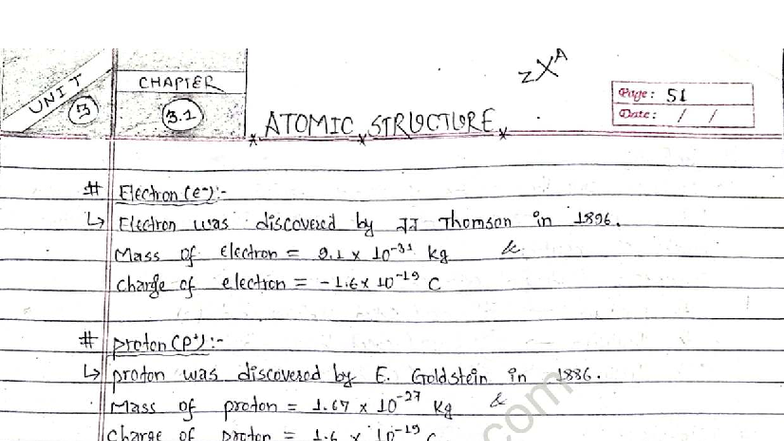 zXᴬ
UNIT 3
CHAPTER 3.1
Page: 51
Date: / /
* ATOMIC * STRUCTURE *
# Electron (e⁻):-
↳ Electron was discovered by JJ Thomson in 1896.
Mass of electron = 9.1 × 10⁻³¹ kg &
Charge of electron = -1.6 × 10⁻¹⁹ C
# Proton (P⁺):-
↳ proton was discovered by E. Goldstein in 1886.
Mass of proton = 1.67 × 10⁻²⁷ kg &
Charge of proton = 1.6 × 10⁻¹⁹ C
.com